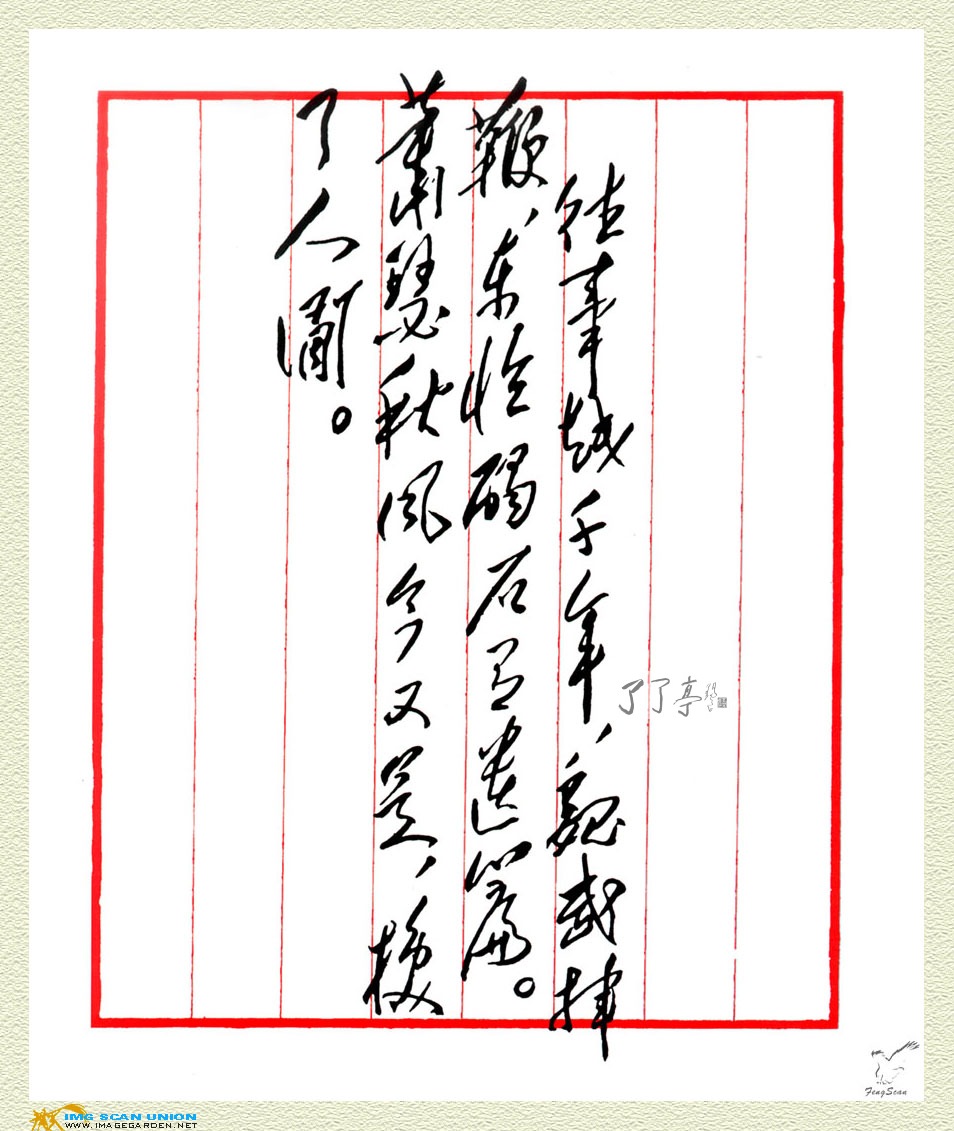 往事越千年、魏武挥
鞭、东临碣石有遗篇。
萧瑟秋风今又是、换
了人间。
了了亭
FengScan
IMG SCAN UNION
WWW.IMAGEGARDEN.NET